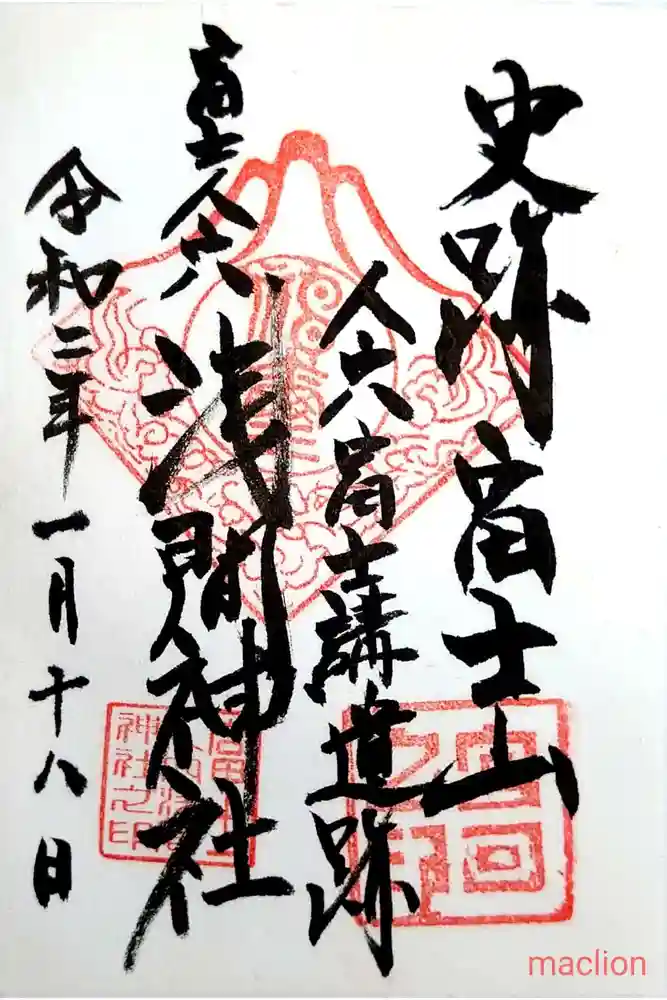 史跡 富士山
人穴富士講遺跡
富士人穴 浅間神社
令和二年一月十八日
神社之印
maclion